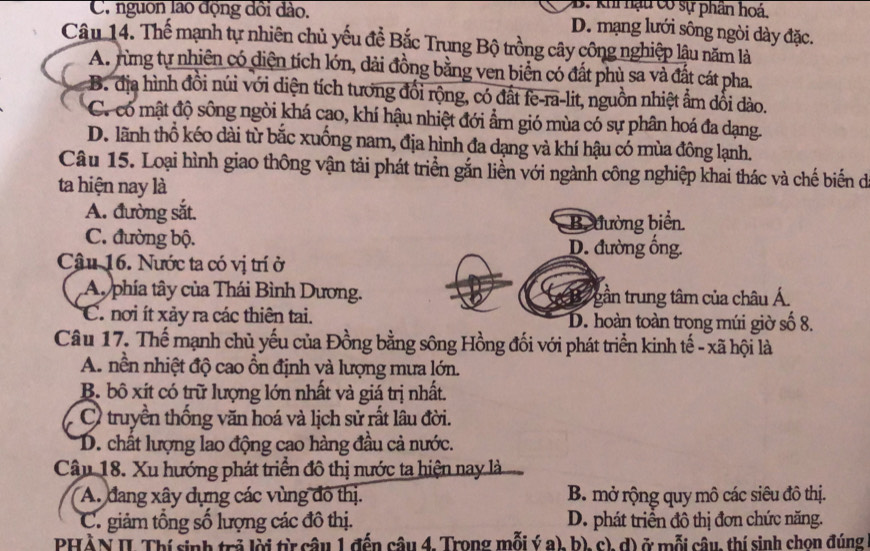 C. nguồn lao động dồi dào.
B. khí hậu có sự phân hoá.
D. mạng lưới sông ngòi dày đặc.
Câu 14. Thế mạnh tự nhiên chủ yếu để Bắc Trung Bộ trồng cây công nghiệp lâu năm là
A. rừng tự nhiên có diện tích lớn, dải đồng bằng ven biển có đất phù sa và đất cát pha.
B. địa hình đồi núi với diện tích tương đối rộng, có đất fe-ra-lit, nguồn nhiệt ẩm dồi dào.
C. có mật độ sông ngòi khá cao, khí hậu nhiệt đới ẩm gió mùa có sự phân hoá đa dạng.
D. lãnh thổ kéo dài từ bắc xuống nam, địa hình đa dạng và khí hậu có mùa đông lạnh.
Câu 15. Loại hình giao thông vận tải phát triển gắn liền với ngành công nghiệp khai thác và chế biến d
ta hiện nay là
A. đường sắt.
B. đường biển.
C. đường bộ.
D. đường ống.
Câu 16. Nước ta có vị trí ở
A. phía tây của Thái Bình Dương.
B
B. gần trung tâm của châu Á.
C. nơi ít xảy ra các thiên tai.
D. hoàn toàn trong múi giờ số 8.
Câu 17. Thế mạnh chủ yếu của Đồng bằng sông Hồng đối với phát triển kinh tế - xã hội là
A. nền nhiệt độ cao ổn định và lượng mưa lớn.
B. bô xít có trữ lượng lớn nhất và giá trị nhất.
C. truyền thống văn hoá và lịch sử rất lâu đời.
D. chất lượng lao động cao hàng đầu cả nước.
Câu 18. Xu hướng phát triển đô thị nước ta hiện nay là
A. đang xây dựng các vùng đô thị.
B. mở rộng quy mô các siêu đô thị.
C. giảm tổng số lượng các đô thị.
D. phát triển đô thị đơn chức năng.
PHẦN II. Thí sinh trả lời từ câu 1 đến câu 4. Trong mỗi ý a), b), c), d) ở mỗi câu, thí sinh chọn đúng